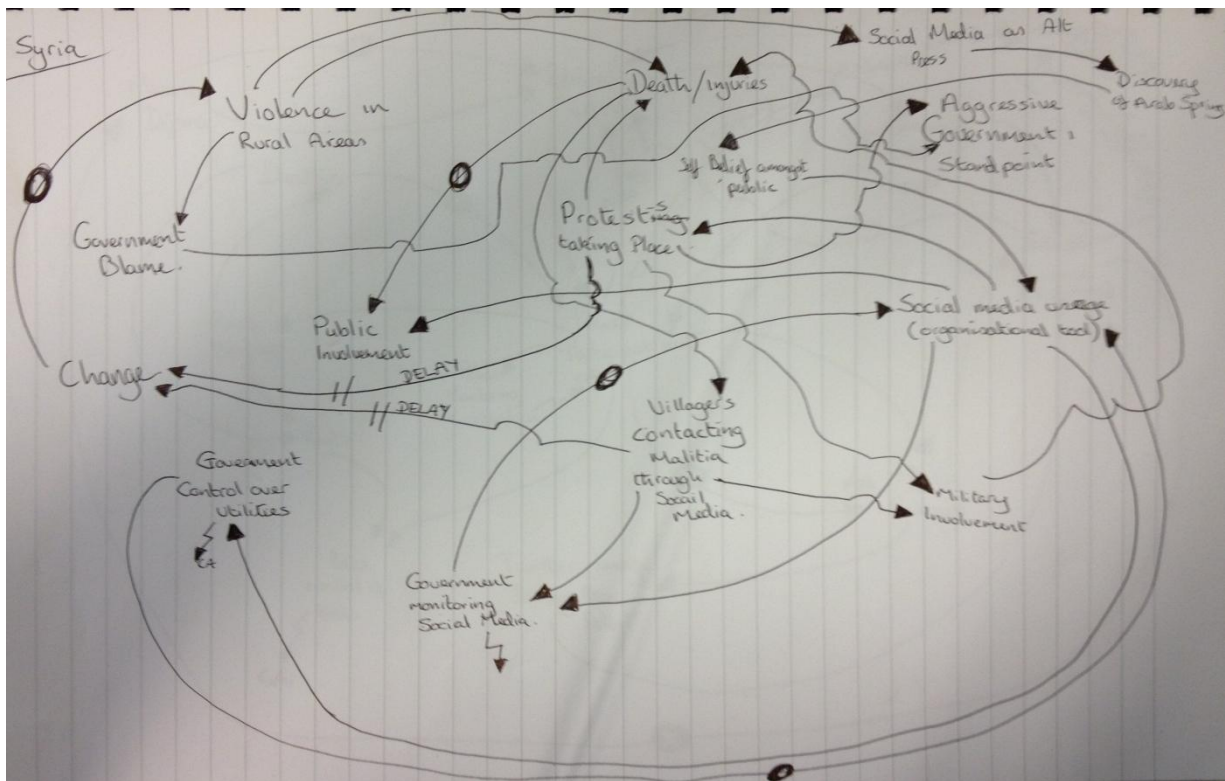 Syria
Social Media as Alt
Press
Discovery
of Arab Spring
Violence in
Rural Areas
Death/Injuries
Aggressive
Government
Standpoint
Self Belief amongst
public
Protests
taking Place.
Government
Blame.
Public
Involvement
Social media usage
(organisational tool)
Change
DELAY
DELAY
Villagers
Contacting
Malitia
through
Socail
Media.
Goverment
Control over
Utilities
Military
Involvement
Government
monitoring
Social Media.